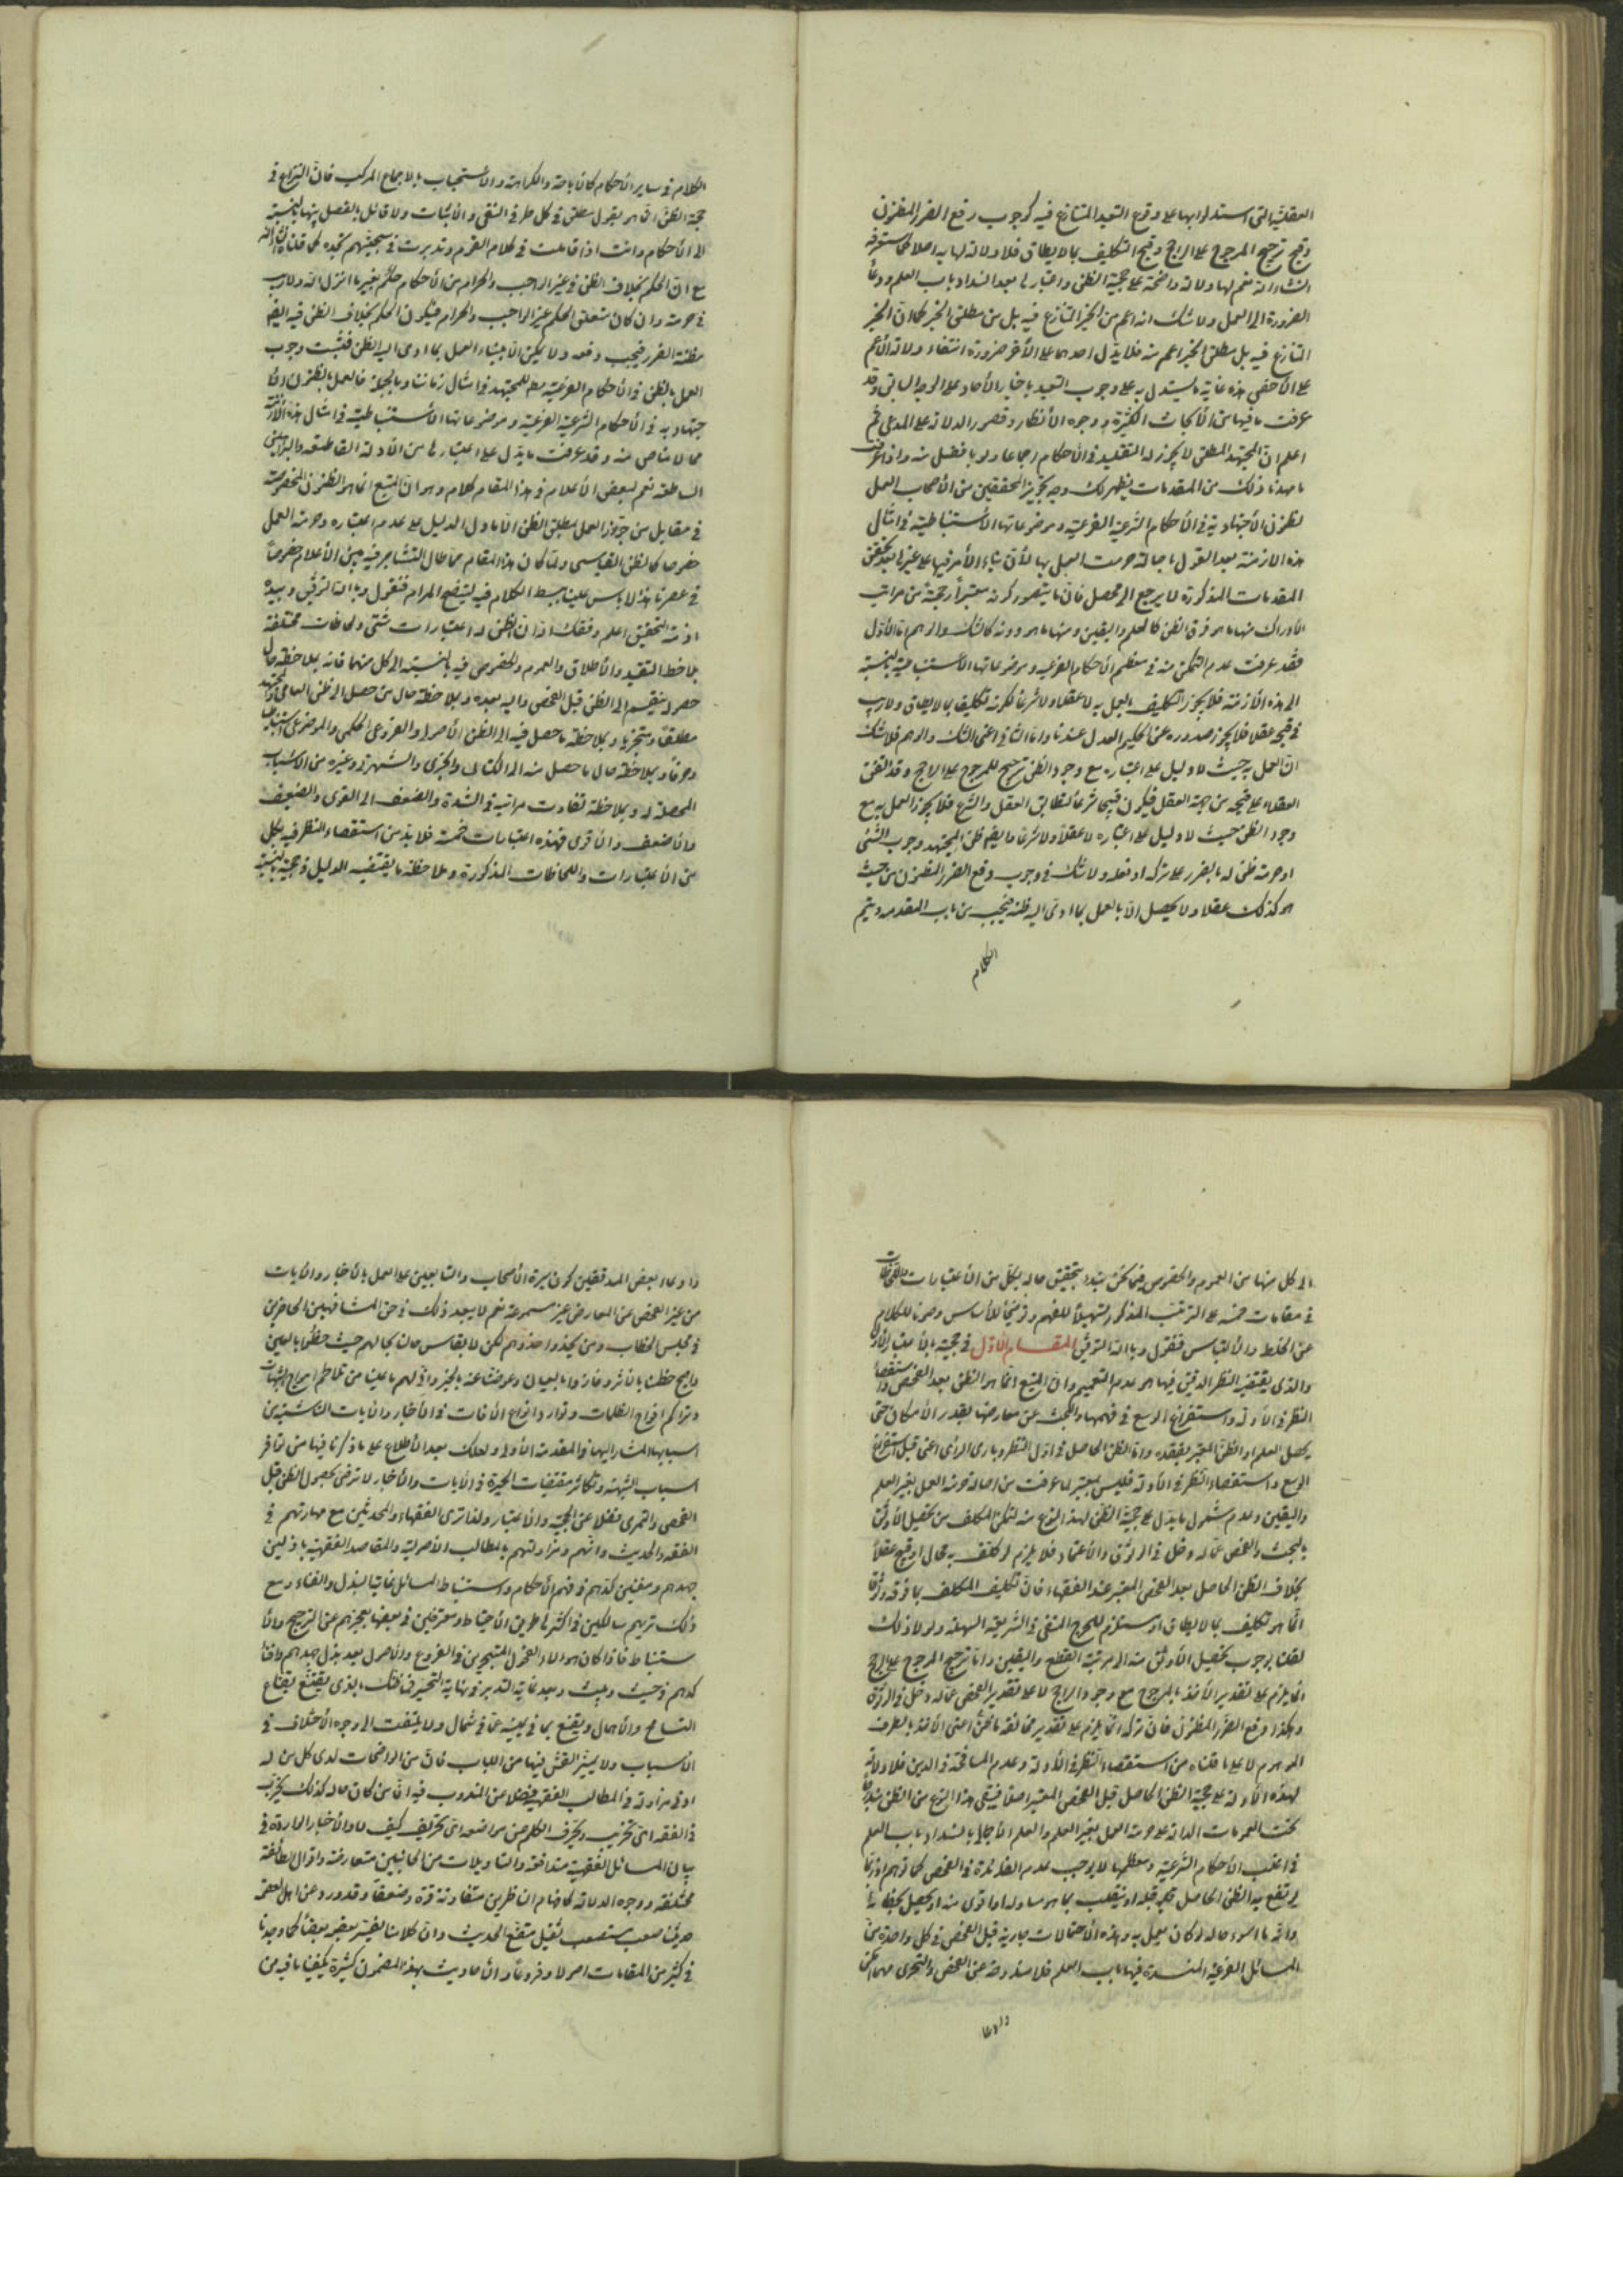 العقلية التى استدلوا بها على وقوع التعبد المتنازع فيه كوجوب دفع الضرر المظنون
وقبح ترجيح المرجوح على الراجح وقبح التكليف بما لا يطاق فلا دلالة لها به اصلا كما ستعرفه
انشاء الله نعم لها دلالة واضحة على حجية الظن واعتباره بعد انسداد باب العلم ودعاء
الضرورة الى العمل ولا شك انه اعم من الخبر المتنازع فيه بل من مطلق الخبر كما ان الخبر
المتنازع فيه بل مطلق الخبر اعم منه فلا يدل احدهما على الآخر ضرورة انتفاء دلالة الأعم
على الأخص هذه غاية ما يستدل به على وجوب التعبد باخبار الآحاد على الوجه السابق وقد
عرفت ما فيها من الأبحاث الكثيرة ووجوه الأنظار وقصور الدلالة على المدعى ثم
اعلم ان المجتهد المطلق لا يجوز له التقليد في الأحكام اجماعا ولو بافضل منه واذا عرفت
ما مهدنا ذلك من المقدمات يظهر لك وجه تجويز المحققين من الأصحاب العمل
لظنون الأجتهادية في الأحكام الشرعية الفرعية وموضوعاتها الأستنباطية في امثال
هذه الازمنة بعد القول باصالة حرمة العمل بها لأن بناء الأمر فيها على غيرها بعد تحقق
المقدمات المذكورة لا يرجع الى محصل فان ما يتصور كونه معتبراً وحجة من مراتب
الأدراك منها ما هو فوق الظن كالعلم واليقين ومنها ما هو دونه كالشك والوهم اما الأول
فقد عرفت عدم التمكن منه في معظم الأحكام الفرعية وموضوعاتها الأستنباطية بالنسبة
الى هذه الأزمنة فلا يجوز التكليف بالعمل به لا عقلا ولا شرعا لكونه تكليف بما لا يطاق ولا ريب
في قبحه عقلا فلا يجوز صدوره عن الحكيم العدل عندنا واما الثاني اعنى الشك والوهم فلا شك
ان العمل به حيث لا دليل على اعتباره مع وجود الظن ترجيح للمرجوح على الراجح وقد اتفق
العقلاء على قبحه من جهة العقل فيكون قبيحا شرعا لتطابق العقل والشرع فلا يجوز العمل به مع
وجود الظن حيث لا دليل على اعتباره لا عقلاً ولا شرعا وايضا ظن المجتهد وجوب الشئ
او حرمته ظن له بالضرر على تركه او فعله ولا شك في وجوب دفع الضرر المظنون من حيث
هو كذلك عقلا ولا يحصل الا بالعمل بما ادى اليه ظنه فيجب من باب المقدمه ويتم
الكلام
الكلام في ساير الأحكام كالأباحة والكراهة والأستحباب بالاجماع المركب فان النزاع في
حجة الظن انما هو بقول مطلق في كل طرف النفى والأثبات ولا قائل بالفصل بينها بالنسبة
الى الأحكام وانت اذا تاملت في كلام القوم وتدبرت في سجيتهم تجده كما قلنا ان شاء الله
مع ان الحكم بخلاف الظن في غير الواجب والحرام من الأحكام حكم بغير ما انزل الله ولا ريب
في حرمته وان كان متعلق الحكم غير الواجب والحرام فيكون الحكم بخلاف الظن فيه ايضا
مظنة الضرر فيجب دفعه ولا يمكن الا ببناء العمل بما ادى اليه الظن فثبت وجوب
العمل بالظن في الأحكام الفرعية مطلقا للمجتهد في امثال زماننا وبالجملة فالعمل بالظنون الأ
جتهادية في الأحكام الشرعية الفرعية وموضوعاتها الأستنباطية في امثال هذه الأزمنة
مما لا مناص منه وقد عرفت ما يدل على اعتبارها من الأدلة القاطعة والبراهين
الساطعة نعم لبعض الأعلام في هذا المقام كلام وهو ان المتبع انما هو الظنون المخصوصة
في مقابل من جوّز العمل بمطلق الظن الا ما دل الدليل على عدم اعتباره وحرمة العمل
خصوصا كالظن القياسى ولما كان هذا المقام مما طال التشاجر فيه بين الأعلام خصوصاً
في عصرنا هذا لا باس علينا ببسط الكلام فيه ليتضح المرام فنقول وبالله التوفيق وبيده
ازمة التحقيق اعلم وفقك الله ان للظن اعتبارات شتى ولحاظات مختلفة
بملاحظة التقييد والأطلاق والعموم والخصوص فيه بالنسبة الى كل منهما فانه بملاحظة حال
حصوله ينقسم الى الظن قبل الفحص واليه بعده وبملاحظة حال من حصل له الى ظن العامى والمجتهد
مطلقا ومتجزيا وبملاحظة ما حصل فيه الى الظن الأصولى والفروعى الحكمى والموضوعى استنباطيا
وصرفا وبملاحظة حال ما حصل منه الى الكتابى والخبرى والشهرتى وغيره من الاسباب
المحصلة له وبملاحظة تفاوت مراتبه في الشدة والضعف الى القوى والضعيف
والأضعف والأقوى فهذه اعتبارات خمسة فلا بد من استقصاء النظر فيه بكل
من الأعتبارات واللحاظات المذكورة وملاحظة ما يقتضيه الدليل في حجيته بالنسبة
الى كل منها من العموم والخصوص فنحن نبتدء بتحقيق حاله بكل من الأعتبارات واللحاظات
في مقامات خمسة على الترتيب المذكور تسهيلاً للفهم وتوضيحاً للأساس وصونا للكلام
عن الخلط والألتباس فنقول وبالله التوفيق المقـام الأول في حجيته بالأعتبار الأول
والذى يقتضيه النظر الدقيق فيها هو عدم التعميم وان المتبع انما هو الظن بعد الفحص واستقصاء
النظر في الأدلة واستفراغ الوسع في فهمها والبحث عن معارضها بقدر الأمكان حتى
يحصل العلم او الظن المعتبر بفقده واما الظن الحاصل في اول النظر وبادى الرأى اعنى قبل استفراغ
الوسع واستقصاء النظر في الأدلة فليس بمعتبر لما عرفت من اصالة حرمة العمل بغير العلم
واليقين وعدم شمول ما يدل على حجية الظن لهذا النوع منه لتمكن المكلف من تحصيل الأوثق
بالبحث والفحص عما له دخل في الوثوق والأعتماد فلا يلزم لو كلف به محال او قبح عقلاً
بخلاف الظن الحاصل بعد الفحص المعتبر عند الفقهاء فان تكليف المكلف بما فوقه وثوقا
انما هو تكليف بما لا يطاق او مستلزم للحرج المنفى في الشريعة السهلة ولولا ذلك
لقلنا بوجوب تحصيل الأوثق منه الى مرتبة القطع واليقين واما ترجيح المرجوح على الراجح
انما يلزم على تقدير الأخذ بالمرجوح مع وجود الراجح لا على تقدير الفحص عما له دخل في الوثوق
وهكذا دفع الضرر المظنون فان تركه انما يلزم على تقدير مخالفة ما ظن اعنى الأخذ بالطرف
الموهوم لا على ما قلناه من استقصاء النظر في الأدلة وعدم المسامحة في الدين فلا دلالة
لهذه الأدلة على حجية الظن الحاصل قبل الفحص المعتبر اصلا فيبقى هذا النوع من الظن مندرجا
تحت العمومات الدالة على حرمة العمل بغير العلم والعلم الأجمالى بانسداد باب العلم
في اغلب الأحكام الشرعية ومعظمها لا يوجب عدم الفائدة في الفحص كما توهم اذ ربما
يرتفع به الظن الحاصل قبله او ينقلب بما هو مساو له او اقوى منه او يحصل بخلافه
والله ما اسوء حاله لو كان يعمل به وهذه الأحتمالات جارية قبل الفحص في كل واحدة من
المسائل الفرعية المنسدة فيها باب العلم فلا مندوحة عن الفحص والتحرى مهما امكن
وادعاء
وادعاء بعض المدققين كون سيرة الأصحاب والتابعين على العمل بالأخبار والآيات
من غير الفحص عن المعارض غير مسموعة نعم لا يبعد ذلك في حق المشافهين الحاضرين
في مجلس الخطاب ومن يحذو حذوهم لكن لا يقاس حالنا بحالهم حيث حظوا بالعين
واصبح حظنا بالأثر وفازوا بالعيان وعوضنا عنه بالخبر وانى لهم ما علينا من تلاطم امواج الشبهات
وتراكم افواج الظلمات وتوارد انواع الآفات في الأخبار والآيات الناشئة من
اسبابها المشار اليها في المقدمة الأولى ولعلك بعد الأطلاع على ما ذكرنا فيها من توافر
اسباب الشبهة وتكاثر مقتضيات الحيرة في الآيات والأخبار لا ترضى بحصول الظن قبل
الفحص والتحرى فضلا عن الحجية والأعتبار ولذا ترى الفقهاء والمحدثين مع مهارتهم في
الفقه والحديث وانسهم ومزاولتهم بالمطالب الأصولية والمقاصد الفقهية باذلين
جهدهم ومفنين كدهم في فهم الأحكام واستنباط المسائل غاية البذل والفناء ومع
ذلك تريهم سالكين في اكثرها طريق الأحتياط ومعترفين في بعضها بعجزهم عن الترجيح والأ
ستنباط فاذا كان هؤلاء الفحول المتبحرين في الفروع والأصول بعد بذل جهدهم وافناء
كدهم في حيث وبيث وبعد غاية التدبر ونهاية التحير فما ظنك بالذى يقنع بقناع
التسامح والأهمال ويقنع بما في يمينه عما في شمال ولا يلتفت الى وجوه الأختلاف في
الأسباب ولا يميز القشر فيها من اللباب فان من الواضحات لدى كل من له
ادنى مزاولة في المطالب الفقهية فضلا عن المتدرب فيه ان من كان حاله كذلك يخرب
في الفقه اى تخريب ويحرف الكلم عن مواضعه اى تحريف كيف لا والأخبار الواردة في
بيان المسائل الفقهية متدافعة والتاويلات من الجانبين متعارضة واقوال الطائفة
مختلفة ووجوه الدلالة كافهام الناظرين متفاوتة قوة وضعفا وقد ورد عن اهل العصمة
حديثنا صعب مستصعب ثقيل مقنع الحديث وان كلامنا يفسر بعضه بعضاً كما وجدنا
في كثير من المقامات اصولا وفروعا والأحاديث بهذا المضمون كثيرة يكفينا ما فيه من